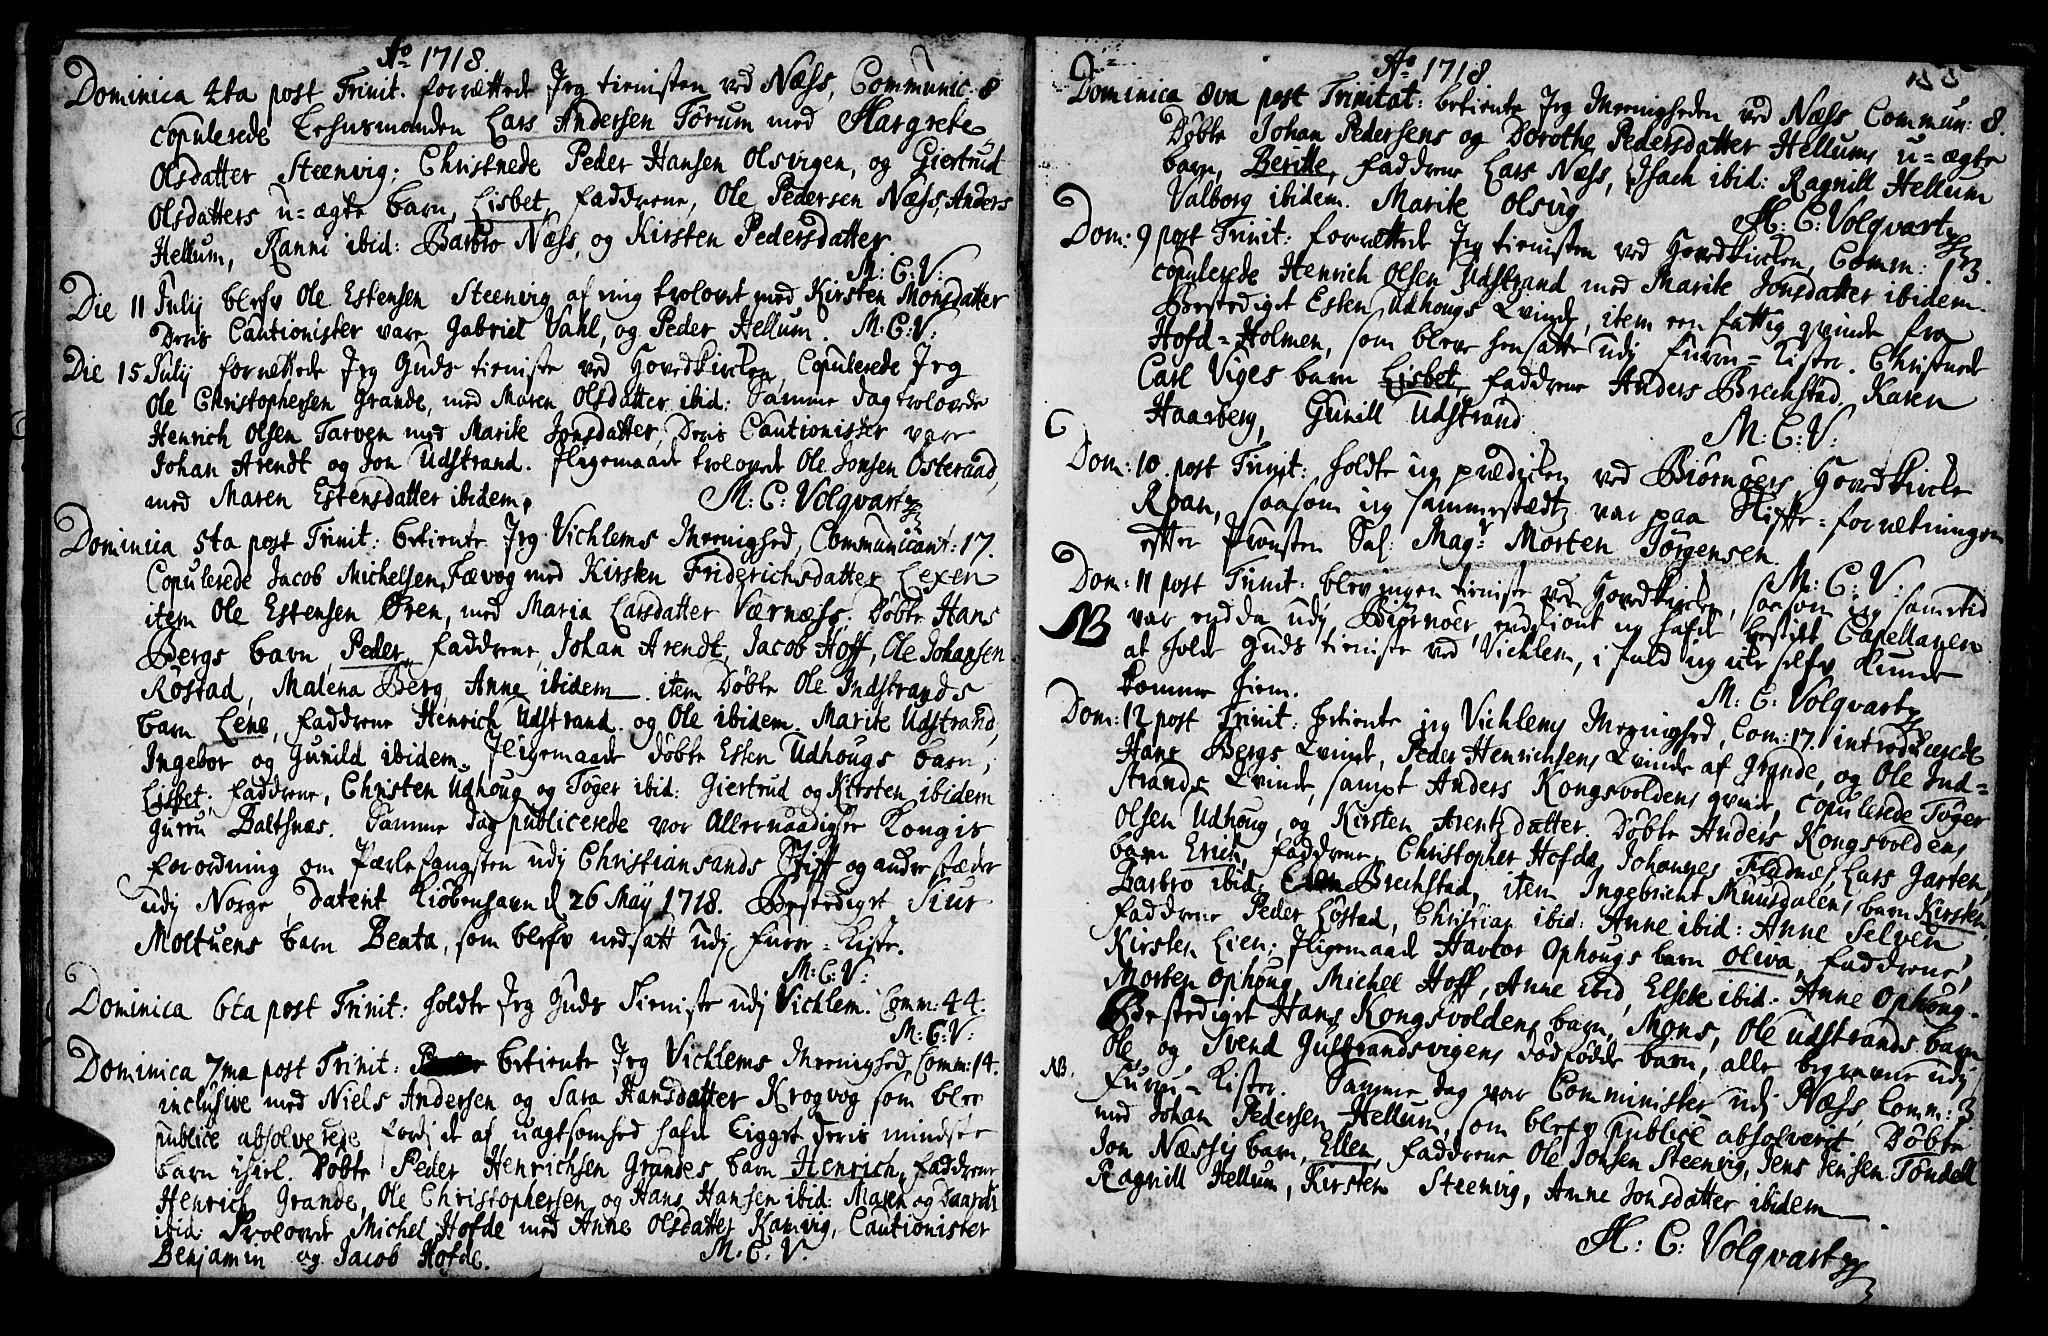 Ao 1718.
Dominica 4ta post Trinit. forrettede Jeg tienisten ved Næss, Communic: 8
copulerede Lehnsmanden Lars Andersen Tørum med Margrete
Olsdatter Steenvig; Christnede Peder Hansen Olsvigen, og Giertrud
Olsdatters u=ægte barn, Lisbet, faddrene, Ole Pedersen Næss, Anders
Hellum, Ranni ibid: Barbro Næss, og Kirsten Pedersdatter
M: C: V:
Die 11 Julij blefv Ole Estensen Steenvig af mig trolovet med Kirsten Monsdatter
Deris Cautionister vare Gabriel Vahl, og Peder Hellum. M: C: V:
Die 15 Julij forrettede Jeg Guds tieniste ved Hovedkircken, Copulerede Jeg
Ole Christophersen Grande, med Maren Olsdatter ibid: Samme dag trolovede
Henrich Olsen Tarven med Marite Jonsdatter, Deris Cautionister vare
Johan Arendt og Jon Udstrand. Jligemaade trolovede Ole Jonsen Østeraad,
med Maren Estensdatter ibidem.
M: C: Volqvartz
Dominica 5ta post Trinit: betiente Jeg Vichlems Meenighed, Communicant: 17.
Copulerede Jacob Michelsen Fævog med Kirsten Friderichsdatter Lexen
item Ole Estensen Øren, med Maria Larsdatter Værnæss; Døbte Hans
Bergs barn, Peder, faddrene, Johan Arendt, Jacob Hoff, Ole Johansen
Røstad, Malena Berg, Anne ibidem. item Døbte Ole Indstrands
barn Lene, faddrene Henrich Udstrand. og Ole ibidem, Marite Udstrand,
Ingebor og Gunild ibidem. Jligemaade døbte Esten Udhougs barn,
Lisbet; faddrene, Christen Udhoug og Tøger ibid: Giertrud og Kirsten ibidem
Guru Baltsnæs. Samme dag publicerede vor Allernaadigste Kongis
forordning om Pærlefangsten udj Christiansands Stift og andre stæder
udj Norge, datert Kiøbenhavn d 26 May 1718. Bestediget Siur
Moltuens barn Beata, som blefv nedsatt udj furu=Kiste.
M: C: V:
Dominica 6ta post Trinit: holdte Jeg Guds Tieniste udj Vichlem. Comm: 44.
M: C: V:
Dominica 7ma post Trinit: betiente Jeg Vichlems Meenighed, Comm: 14.
inclusive med Niels Andersen og Sara Hansdatter Krogvog som blev
publice absolverede fordj de af uagtsomhed hafde ligget deris mindste
barn ihiel. Døbte Peder Henrichsen Grandes barn Henrich, faddrene
Henrich Grande, Ole Christophersen, og Hans Hansen ibid: Maren og Daardi
ibid. Trolovede Michel Hofde med Anne Olsdatter Kamvig, Cautionister
Benjamin og Jacob Hofde.
M: C: V.
Ao 1718
Dominica 8va post Trinitat: betiente Jeg Meenigheden ved Næss Commun: 8.
Døbte Johan Pedersens og Dorothe Pedersdatter Hellums u=ægte
barn, Beritte, faddrene Lars Næss, Isach ibid: Ragnill Hellum
Valborg ibidem. Marite Olsvig.
M: C: Volqvartz
Dom: 9 post Trinit: forrettede Jeg tienisten ved Hovedkircken, Comm: 13.
copulerede Henrich Olsen Udstrand med Marite Jonsdatter ibidem.
Bestediget Esten Udhougs Qvinde, item een fattig qvinde fra
Hofd=Holmen, som bleve hensatte udj furu=Kister. Christnede
Carl Viges barn Lisbet, faddrene Anders Brechstad, Karen
Haarberg, Gunill Udstrand.
M: C: V:
Dom: 10 post Trinit: holdte jeg prædiken ved Biørnøers Hovedkircke
Roan, saasom jeg sammestædz var paa Skifte=forretningen
efter Provsten Sal: Magr Morten Jørgensen.
M: C: V:
Dom: 11 post Trinit: blev ingen tieniste ved Hovedkircken, saasom jeg samme tid
NB var endda udj Biørnøer, endskiønt jeg hafde bestilt Capellanen
at holde Guds tieniste ved Vichlem, i fald jeg icke selfv kunde
komme hiem.
M: C: Volqvartz
Dom: 12 post Trinit: betiente jeg Vichlems Meenighed, Com: 17. introducerede
Hans Bergs Qvinde, Peder Henrichsens Qvinde af Grande, og Ole Ind=
strands Qvinde, sampt Anders Kongsvoldens qvinde, copulerede Tøger
Olsen Udhoug, og Kirsten Arentzdatter. Døbte Anders Kongsvoldens
barn Erich, faddrene, Christopher Hofde, Johannes Fladnæs, Lars Garten,
Barbro ibid: Brechstad, item Ingebricht Muusdalens barn Kirsten,
faddrene Peder Løstad, Christian ibid: Anne ibid: Anne Selven
Kirsten Lien; Jligemaade Havtor Ophougs barn Oliva, faddrene,
Morten Ophoug, Michel Hoff, Anne ibid, Elsebe ibid. Anne Ophoug.
Bestediget Hans Kongsvoldens barn, Mons, Ole Udstrands barn
Ole, og Svend Gustrandsvigens dødfødde barn, alle begravne udj
NB. Furu=Kister. Samme dag var Comminister udj Næss, Comm: 3
med Johan Pedersen Hellum, som blefv publice absolveret, Døbte
Jon Næssis barn, Ellen, faddrene Ole Jonsen Steenvig, Jens Jensen Tøndell
Ragnill Hellum, Kirsten Steenvig, Anne Jonsdatter ibidem.
M: C: Volqvartz